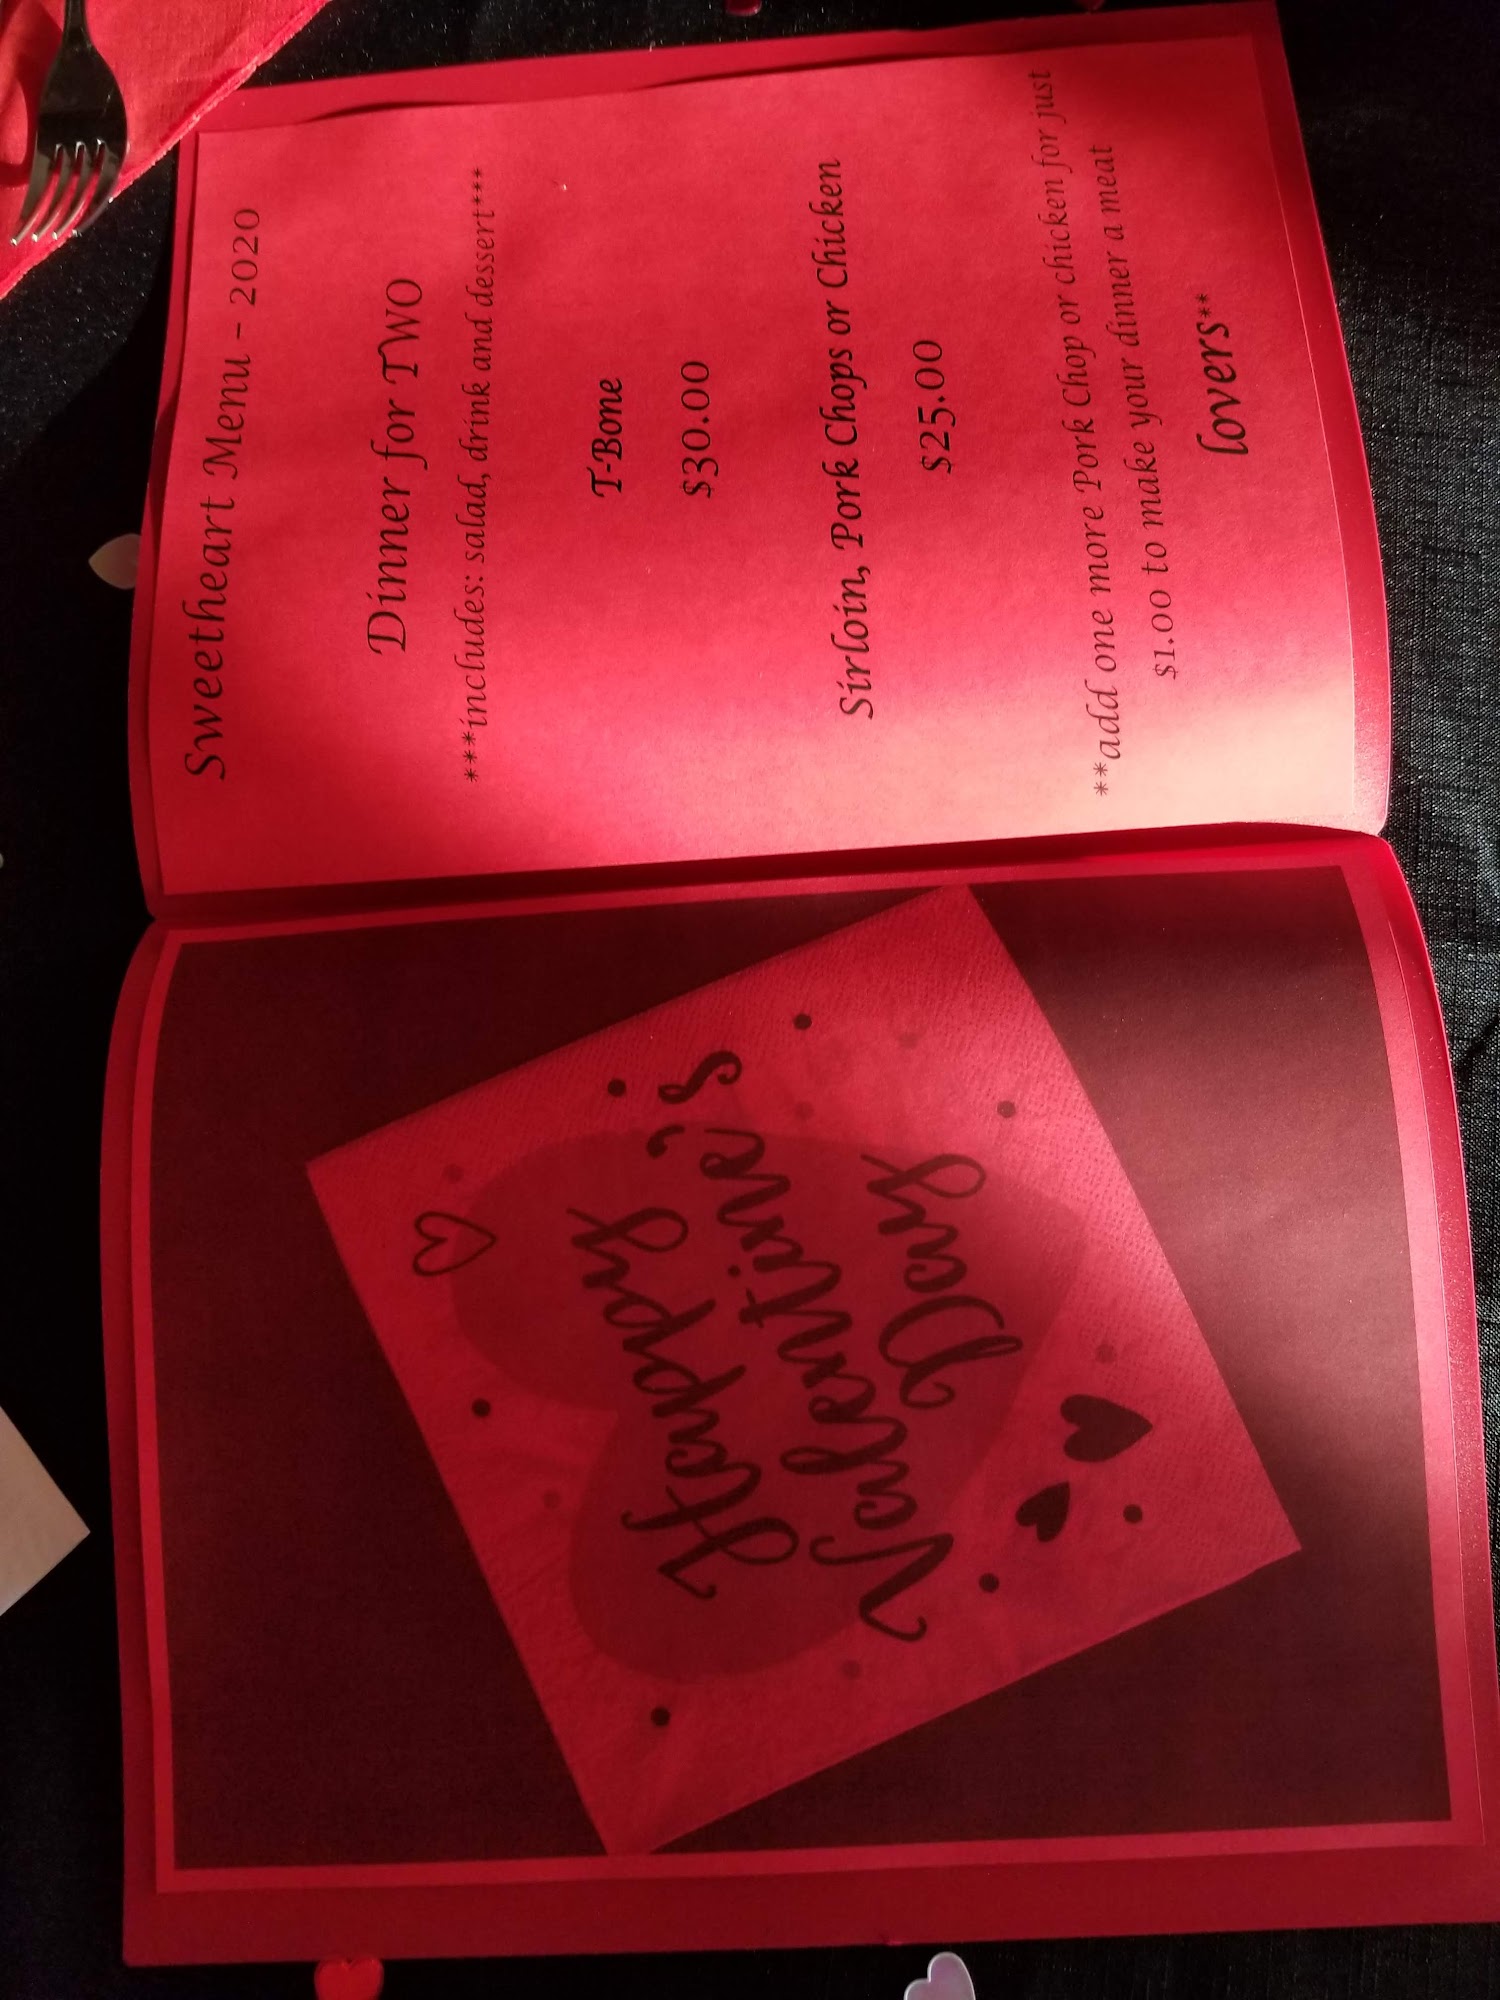 Happy
Valentine's
Day
Sweetheart Menu - 2020
Dinner for TWO
***includes: salad, drink and dessert***
T-Bone
$30.00
Sirloin, Pork Chops or Chicken
$25.00
**add one more Pork Chop or chicken for just
$1.00 to make your dinner a meat
lovers**